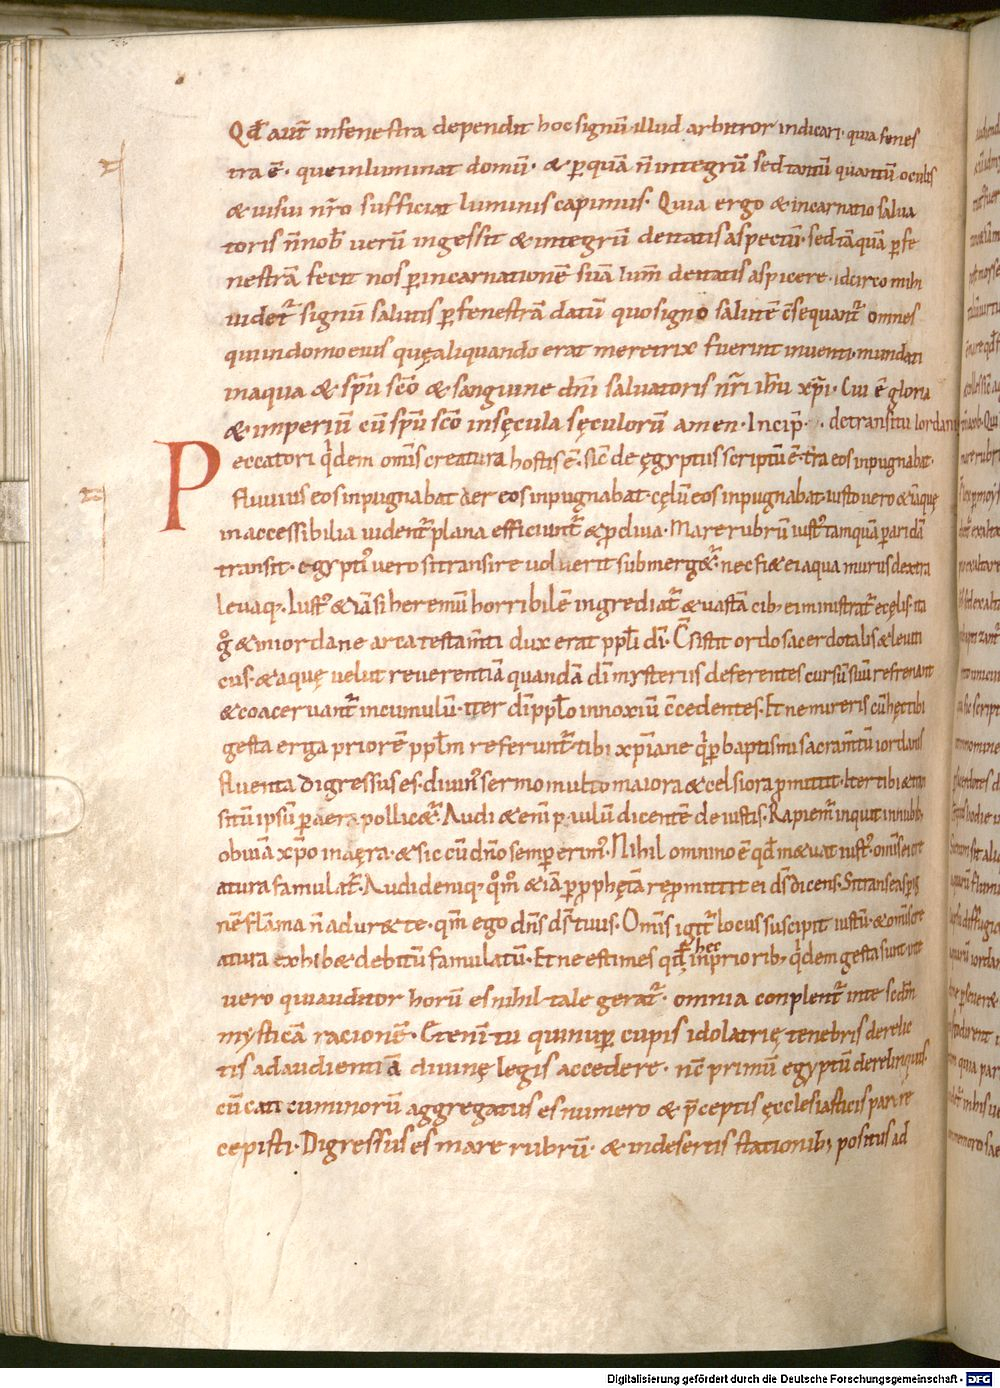 Qd̄ aut̄ infenestra dependit hoc signū illud arbitror indicari· quia fenes
tra ē· que inluminat domū· & p̄ quā n̄ integrū sed tantū quantū oculis
& uisui nr̄o sufficiat luminis capimus· Quia ergo & incarnatio salua
toris n̄ nob̄ uerū ingessit & integrū deitatis aspectū· sed tāquā p̄ fe
nestrā fecit nos p̄ incarnationē suā lum̄ deitatis aspicere· idcirco mihi
uidet̄ signū salutis p̄ fenestrā datū quo signo salutē c̄sequant̄ omnes
qui in domo eius quę aliquando erat meretrix fuerint inuenti· mundati
in aqua & sp̄u sc̄o & sanguine dn̄i saluatoris nr̄i ih̄u xp̄i· Cui ē gloria
& imperiū cū sp̄u sc̄o in sęcula sęculorū amen· Incip̄· de transitu Iordanis
Peccatori q̄dem omīs creatura hostis ē· sic̄ de ęgyptus scriptū ē· t̄ra eos inpugnabat·
Fluuius eos inpugnabat aer eos inpugnabat· cęlū eos inpugnabat· iusto uero & iā quę
inaccessibilia uident̄ plana efficiunt̄ & p̄cliua· Mare rubrū iust᾽ tamquā p̄ aridā
transit· egypti᾽ uero si transire uoluerit submerg&̄· nec fi& ei aqua murus dextra
leuaq;· Iust᾽ & iā si heremū horribilē ingrediat̄ & uastā cib᾽ ei ministrat̄ e cęlis· ita
g̊ & in iordane arca testam̄ti dux erat ppl̄i dī· C̄sistit ordo sacerdotalis & leuiti
cus· & aquę uelut reuerentiā quandā dī mysteriis deferentes cursū suū refrenant
& coaceruant̄ in cumulū· iter dī ppl̄o innoxiū c̄cedentes· Et ne mireris cū hęc tibi
gesta erga priorē ppl̄m referunt̄· tibi xp̄iane q̄ p̄ baptismi sacram̄tū iordanis
fluenta digressus es· diuin᾽ sermo multo maiora & celsiora p̄mittit· Iter tibi & tran
sitū ipsū p̄ aera pollic&̄· Audi & enī paulū dicentē de iustis· Rapiem̄ inquit in nubib;
obuiā xp̄o in aęra· & sic cū dn̄o semp̄ erim᾽· Nihil omnino ē qd̄ m&uat iust᾽· omīs ei cre
atura famulat̄· Audi deniq; qm̊ & iā p̄ p̄ph&ā rep̄mittit ei d̄s dicens· Si transeas p̄ ig
nē flāma n̄ adur& te· qm̄ ego dn̄s d̄s tuus· Omīs igit̄ locus suscipit iustū· & omīs cre
atura exhib& debitū famulatū· Et ne estimes qd̄ hec in priorib; q̄dem gesta sunt· in te
uero qui auditor horū es nihil tale gerat̄· omnia conplent̄ in te scdm̄
mysticā racionē· Etenī tu qui nup̄ cupis idolatrię tenebris derelic
tis ad audientiā diuinę legis accedere· nc̄ primū egyptū derelinquis·
cū caticuminorū aggregatus es numero & p̄ceptis ęcclesiasticis parere
cepisti· Digressus es mare rubrū· & in desertis stationib; positus ad
Digitalisierung gefördert durch die Deutsche Forschungsgemeinschaft - DFG